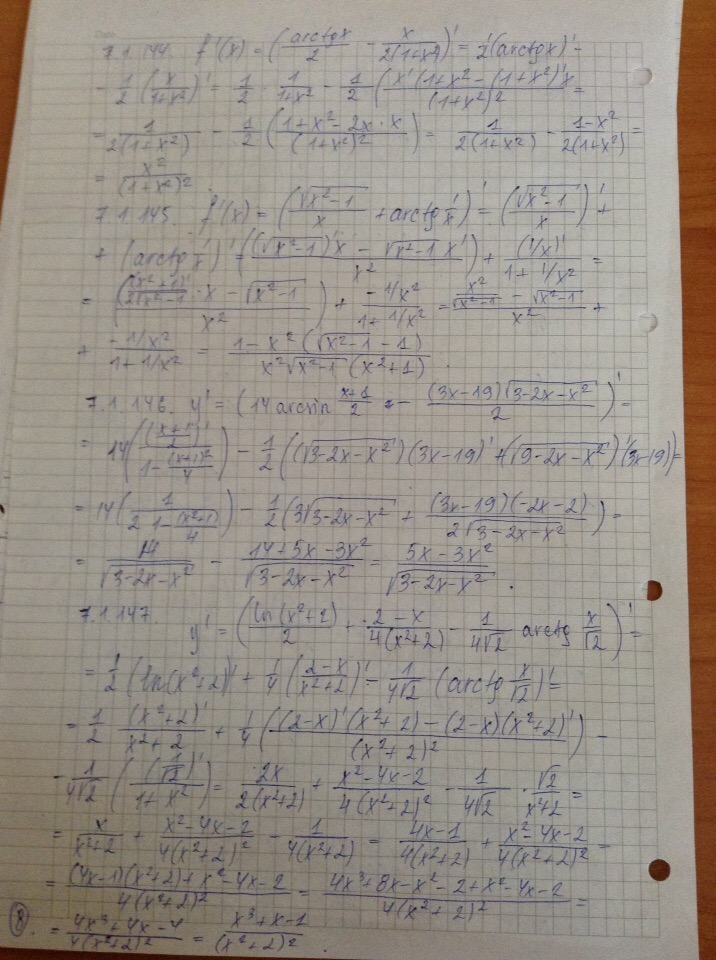 7.1.144. f'(x) = (arctgx/2 - x/2(1+x²))' = 1/2(arctgx)' -
- 1/2 (x/1+x²)' = 1/2 · 1/1+x² - 1/2 (x'(1+x² - (1+x²)'x/(1+x²)²) =
= 1/2(1+x²) - 1/2 (1+x²-2x·x/(1+x²)²) = 1/2(1+x²) - 1-x²/2(1+x²)² =
= x²/(1+x²)².
7.1.145. f'(x) = (√x²-1/x + arctg 1/x)' = (√x²-1/x)' +
+ (arctg 1/x)' = ((√x²-1)'x - √x²-1 x'/x²) + (1/x)'/1+1/x² =
= ((x²+1)'/2√x²-1 · x - √x²-1/x²) + -1/x²/1+1/x² = x²/√x²-1 - √x²-1/x² +
+ -1/x²/1+1/x² = 1-x²(√x²-1 - 1)/x²√x²-1(x²+1).
7.1.146. y' = (14 arcsin x+1/2 - (3x-19)√3-2x-x²/2)' =
= 14((x+1/2)'/1-(x+1)²/4) - 1/2((√3-2x-x²)(3x-19)' + (√9-2x-x²)'(3x-19)) =
= 14(1/2 1-(x²+1)/4) - 1/2(3√3-2x-x² + (3x-19)(-2x-2)/2√3-2x-x²) =
= 14/√3-2x-x² - 14+5x-3x²/√3-2x-x² = 5x-3x²/√3-2x-x².
7.1.147 y' = (ln(x²+2)/2 + 2-x/4(x²+2) - 1/4√2 arctg x/√2)' =
= 1/2 (ln(x²+2))' + 1/4 (2-x/x²+2)' - 1/4√2 (arctg x/√2)' =
= 1/2 (x²+2)'/x²+2 + 1/4 ((2-x)'(x²+2)-(2-x)(x²+2)'/(x²+2)²) -
- 1/4√2 ((1/√2)'/1+x²) = 2x/2(x²+2) + x²-4x-2/4(x²+2)² - 1/4√2 · √2/x²+2 =
= x/x²+2 + x²-4x-2/4(x²+2)² - 1/4(x²+2) = 4x-1/4(x²+2) + x²-4x-2/4(x²+2)² =
= (4x-1)(x²+2)+x²-4x-2/4(x²+2)² = 4x³+8x-x²-2+x²-4x-2/4(x²+2)² =
= 4x³+4x-4/4(x²+2)² = x³+x-1/(x²+2)².